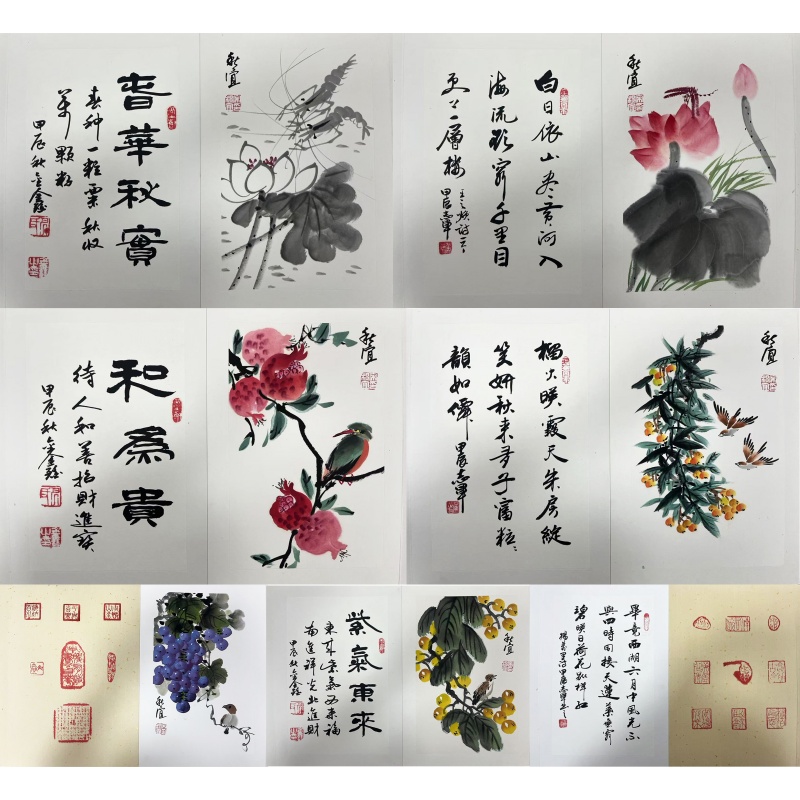 旾華秋實
春种一粒粟 秋收
萬顆籽
甲辰秋金鑫
秋宜
白日依山尽黄河入
海流欲窮千里目
更上一層楼
甲辰志軍
秋宜
和為貴
待人和善招財進寶
甲辰秋金鑫
秋宜
榴火映霞天朱房綻
笑妍秋来多子富粒々
韻如
甲辰志軍
秋宜
秋宜
紫氣東來
東来紫氣西来福
南進祥光北進財
甲辰秋金鑫
秋宜
畢竟西湖六月中風光不
與四時同接天蓮葉無窮
碧映日荷花别樣紅
楊萬里詩甲辰志軍书